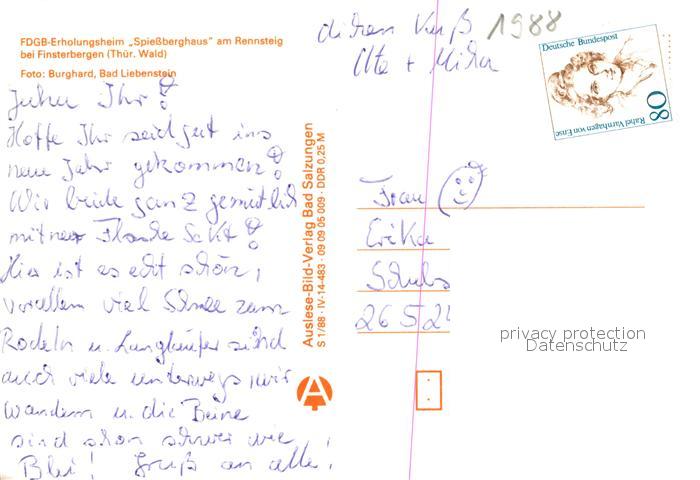 FDGB-Erholungsheim „Spießberghaus" am Rennsteig
bei Finsterbergen (Thür. Wald)
Foto: Burghard, Bad Liebenstein
Juhu Ihr!
Hoffe Ihr seid gut ins
neue Jahr gekommen!
Wir beide ganz gemütlich
mit ner Flasche Sekt!
Hier ist es echt schön,
vorallem viel Schnee zum
Rodeln u. Langläufer sind
auch viele unterwegs, wir
wandern u. die Beine
sind schon schwer wie
Blei! Gruß an alle!
dicken Kuß
Ute +
1988
Deutsche Bundespost
80
Rahel Varnhagen von Ense
Auslese-Bild-Verlag Bad Salzungen
S 1/88 · IV-14-483 · 09 09 05 009 · DDR 0,25 M
Frau
Erika
Schul
2652
privacy protection
Datenschutz